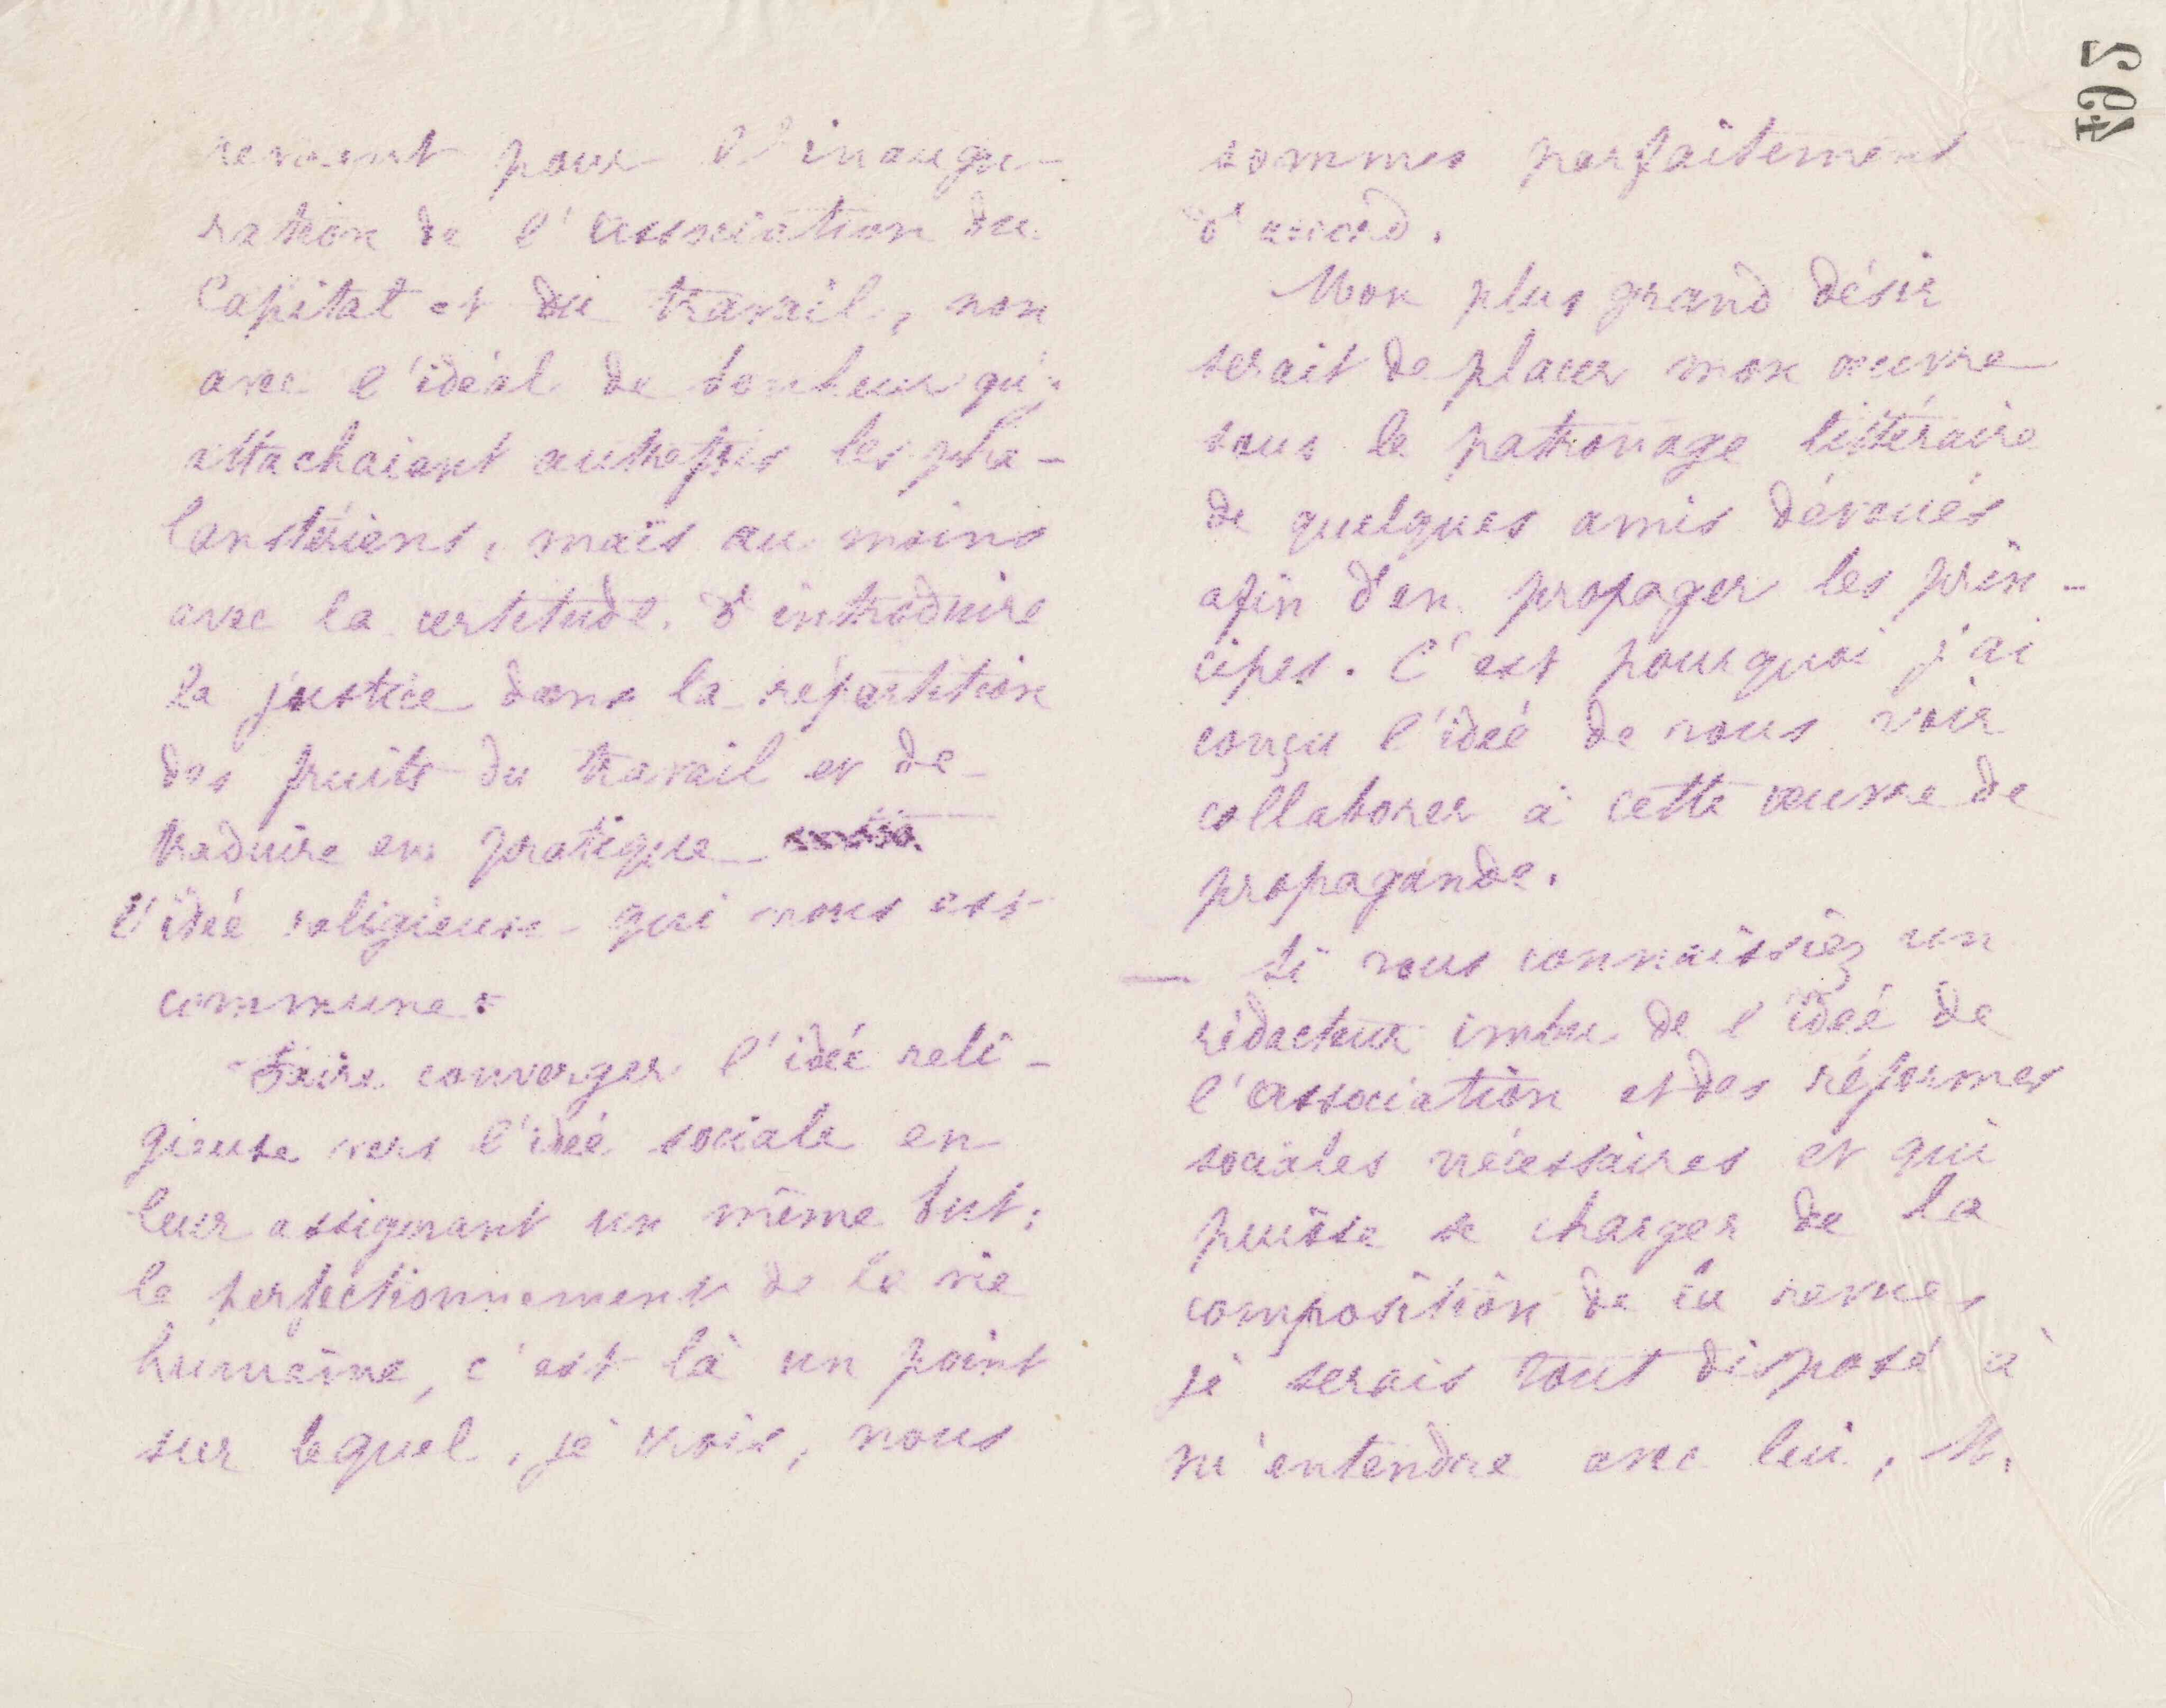 pour l'inaugu-
ration de l'association du
Capital et du travail, non
avec l'idéal de bonheur qu'y
attachaient autrefois les pha-
lanstériens, mais au moins
avec la certitude d'introduire
la justice dans la répartition
des fruits du travail et de
traduire en pratique
l'idée religieuse qui nous est
commune.
Faire converger l'idée reli-
gieuse vers l'idée sociale en
leur assignant un même but:
le perfectionnement de la vie
humaine, c'est là un point
sur lequel, je crois, nous
sommes parfaitement
d'accord.
Mon plus grand désir
serait de placer mon œuvre
sous le patronage littéraire
de quelques amis dévoués
afin d'en propager les prin-
cipes. C'est pourquoi j'ai
conçu l'idée de vous voir
collaborer à cette œuvre de
propagande.
— Si vous connaissiez un
rédacteur imbu de l'idée de
l'association et des réformes
sociales nécessaires et qui
puisse se charger de la
composition de la revue,
je serais tout disposé à
m'entendre avec lui, M.
264